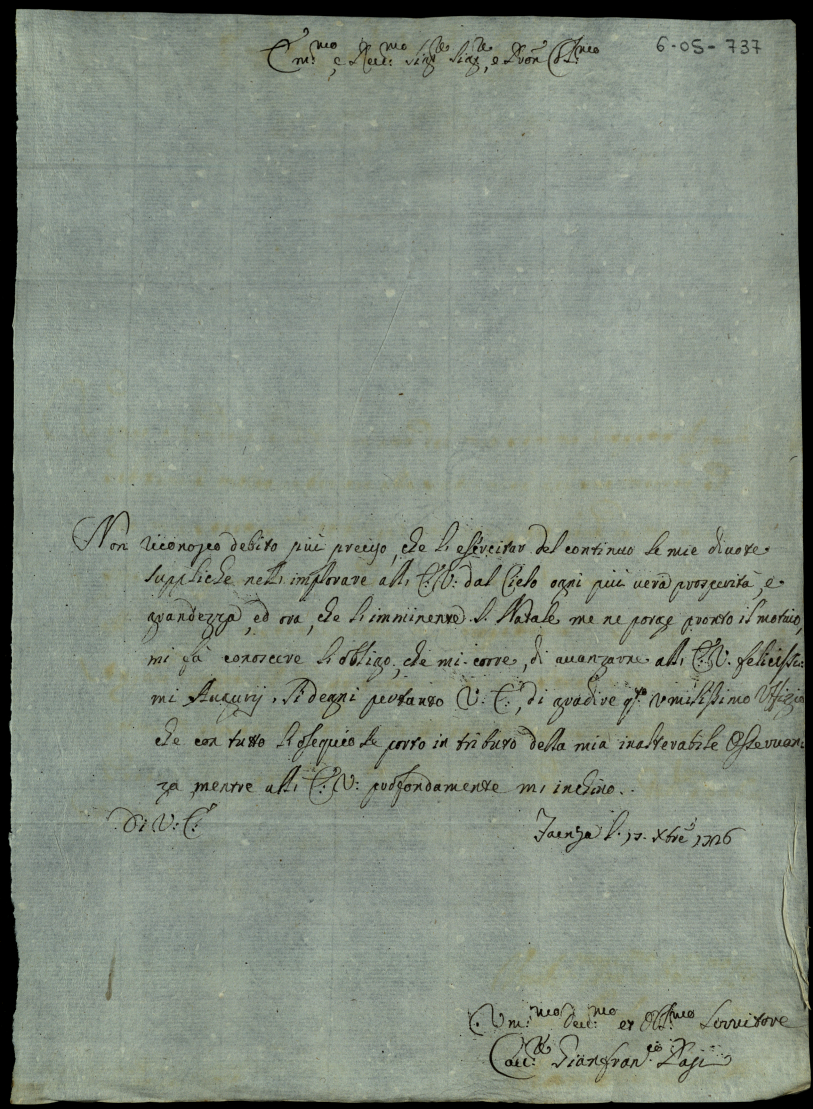 6-05-737
E.mo, e Rev.mo Sig.re Sig.re, e P.ron Col.mo
Non riconosco debito più preciso, che l'esercitar del continuo le mie divote
suppliche nell'implorare all'E.V. dal Cielo ogni più vera prosperità, e
grandezza, ed ora, che l'imminente S. Natale me ne porge pronto il motivo,
mi fà conoscere l'obligo, che mi corre, di avanzarne all'E.V. felicissi:
mi Augurij. Si degni pertanto V.E., di gradire q.to umilissimo Uffizio
che con tutto l'osequio le porto in tributo della mia inalterabile Osservan:
za mentre all'E.V. profondamente m'inchino.
Di V.E.
Faenza li 17. Xbre 1726
Um.mo Dev.mo et Obl.mo Servitore
Cav.re Gianfran.co Pasi